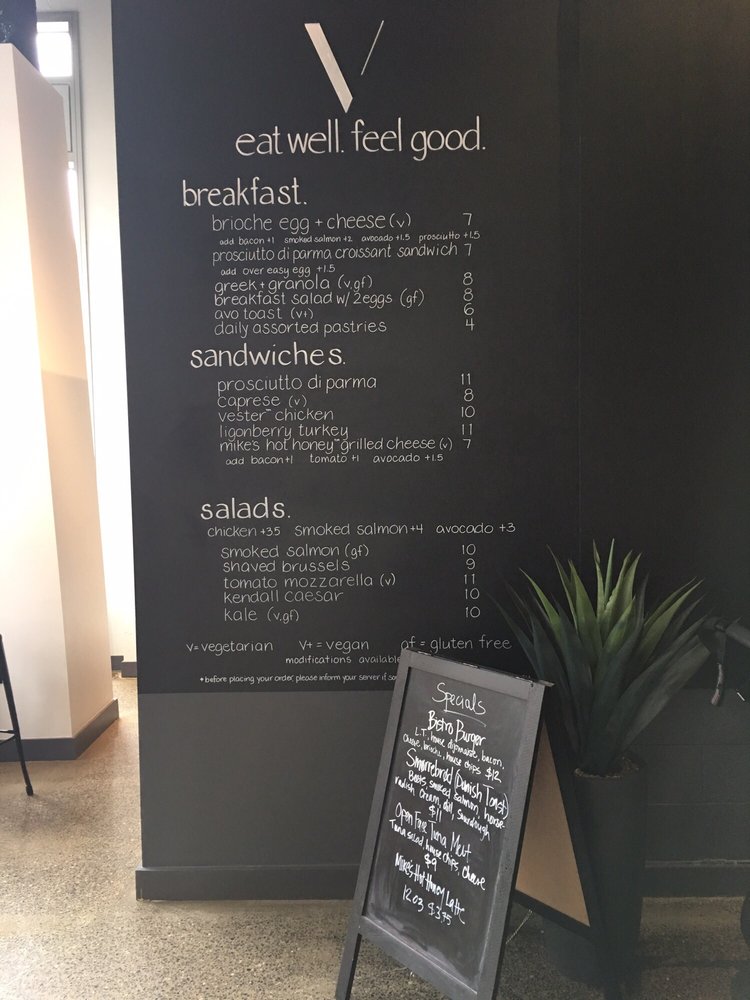 V
eat well. feel good.
breakfast.
brioche egg + cheese (v) 7
add bacon +1 smoked salmon +2 avocado +1.5 prosciutto +1.5
prosciutto di parma croissant sandwich 7
add over easy egg +1.5
greek + granola (v,gf) 8
breakfast salad w/ 2eggs (gf) 8
avo toast (v+) 6
daily assorted pastries 4
sandwiches.
prosciutto di parma 11
caprese (v) 8
vester™ chicken 10
ligonberry turkey 11
mike's hot honey™ grilled cheese (v) 7
add bacon +1 tomato +1 avocado +1.5
salads.
chicken +3.5 smoked salmon +4 avocado +3
smoked salmon (gf) 10
shaved brussels 9
tomato mozzarella (v) 11
kendall caesar 10
kale (v,gf) 10
v= vegetarian V+ = vegan gf = gluten free
modifications available
*before placing your order, please inform your server if
Specials
Bistro Burger
L.T., house dijonnaise, bacon,
cheese, brioche, house chips $12
Smørrebrød (Danish Toast)
Beets, smoked salmon, horse-
radish cream, dill, sourdough
$11
Open Face Tuna Melt
Tuna salad, house chips, cheese
$9
Mike's Hot Honey Latte
12oz $3.75